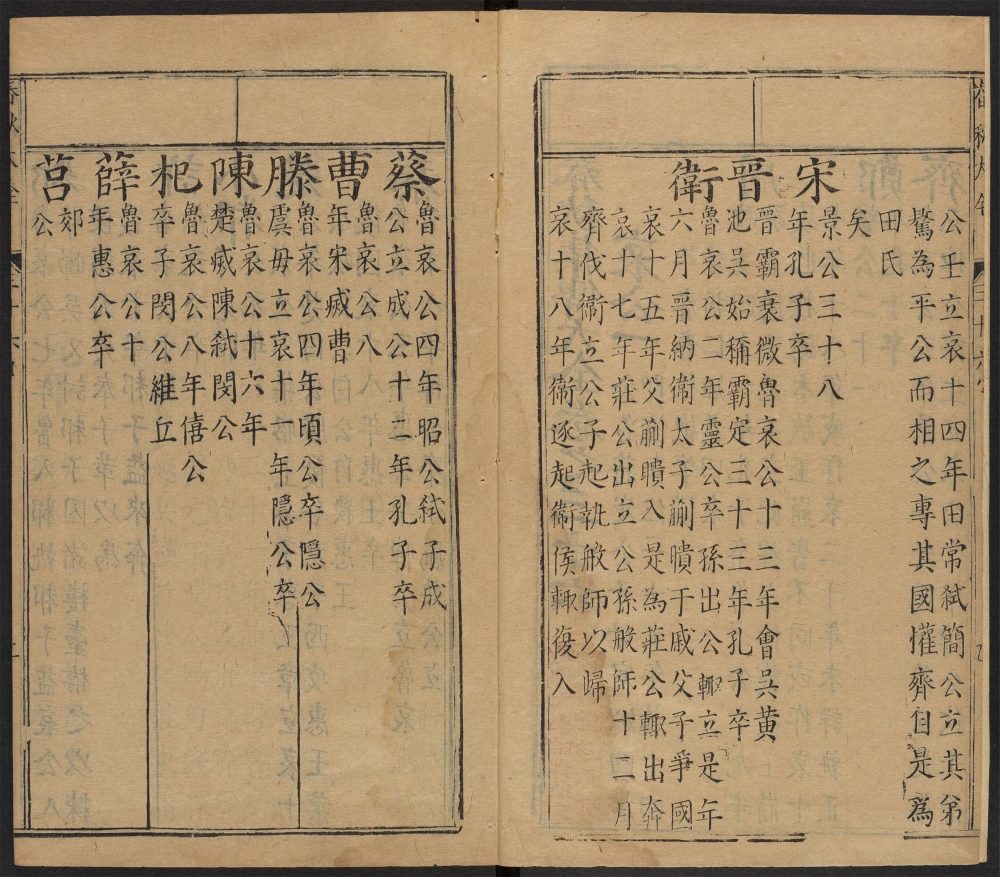 公壬立哀十四年田常弒簡公立其弟
驁為平公而相之專其國權齊自是為
田氏
矣
宋
景公三十八
年孔子卒
晉
晉霸衰微魯哀公十三年會吳黃
池吳始稱霸定三十三年孔子卒
衛
魯哀公二年靈公卒孫出公輙立是年
六月晉納衛太子蒯聵于戚父子爭國
哀十五年父蒯聵入是為莊公輙出奔
哀十七年莊公出立公孫般師十二月
齊伐衛立公子起執般師以歸
哀十八年衛逐起衛侯輙復入
蔡
魯哀公四年昭公弒子成
公立成公十二年孔子卒
曹
魯哀公八
年宋烕曹
滕
魯哀公四年頃公卒隱公
虞毋立哀十一年隱公卒
陳
魯哀公十六年
楚烕陳弒閔公
杞
魯哀公八年僖公
卒子閔公維立
薛
魯哀公十
年惠公卒
莒
郊
公